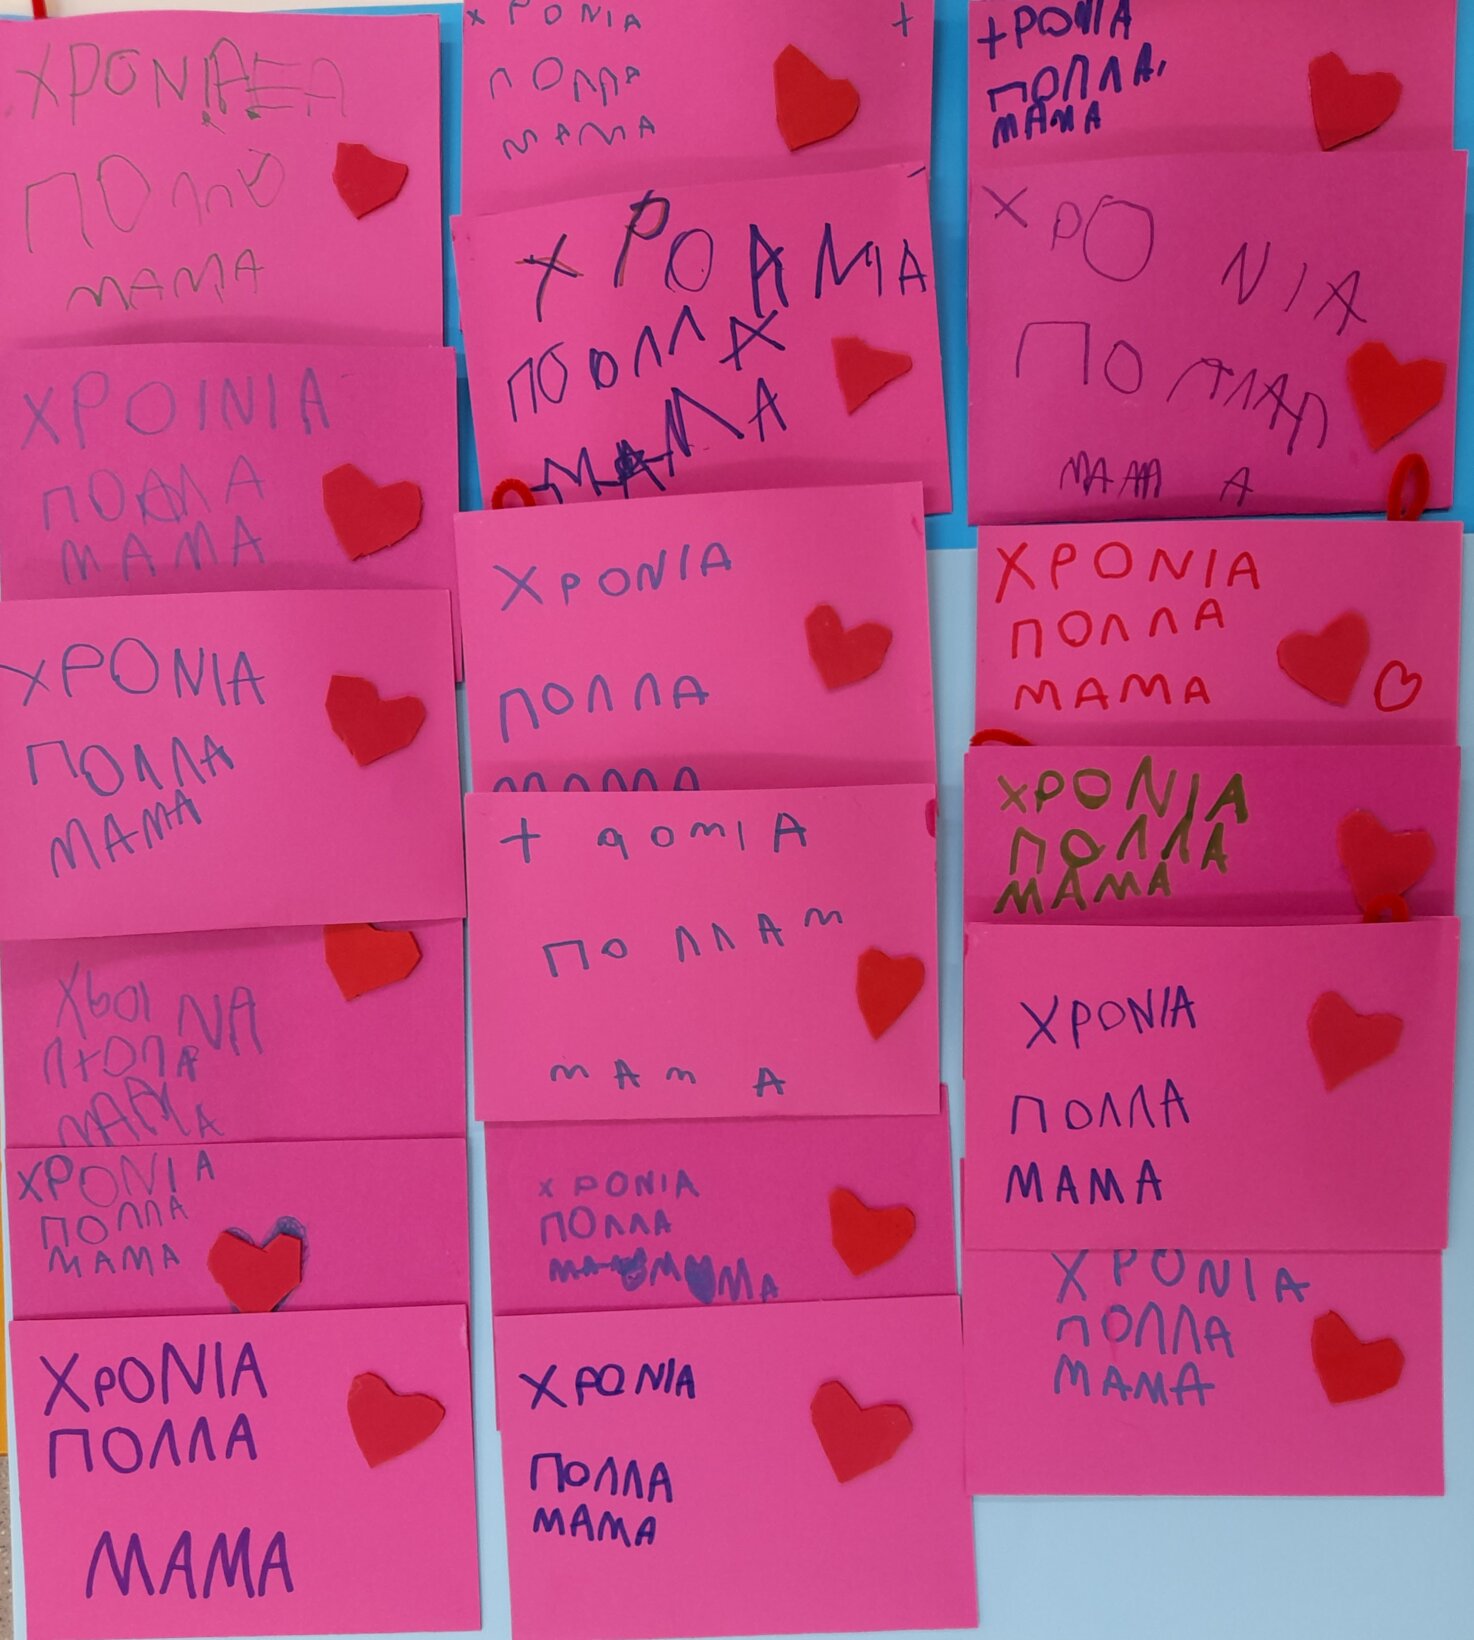 ΧΡΟΝΙΑΞΑ
ΠΟΛΛΟ
ΜΑΜΑ
ΧΡΟΙΝΙΑ
ΠΟΛΛΑ
ΜΑΜΑ
ΧΡΟΝΙΑ
ΠΟΛΛΑ
ΜΑΜΑ
ΝΑ
ΜΑΜΑ
ΧΡΟΝΙΑ
ΠΟΛΛΑ
ΜΑΜΑ
ΧΡΟΝΙΑ
ΠΟΛΛΑ
ΜΑΜΑ
Χ ΡΟΝΙΑ +
ΠΟΛΛΑ
ΜΑΜΑ
ΧΡΟΑΜΙΑ
ΠΟΟΛΛΑ
ΜΑΜΑ
ΧΡΟΝΙΑ
ΠΟΛΛΑ
ΜΑΜΑ
+ qomιΑ
ΠΟ ΛΛΑm
mAm A
Χ ΡΟΝΙΑ
ΠΟΛΛΑ
ΧΡΟΝΙΑ
ΠΟΛΛΑ
ΜΑΜΑ
+ΡΟΝΙΑ
ΠΟΛΛΑ,
ΜΑΜΑ
ΧΡΟ ΝΙΑ
ΠΟ
ΧΡΟΝΙΑ
ΠΟΛΛΑ
ΜΑΜΑ
ΧΡΟΝΙΑ
ΠΟΛΛΑ
ΜΑΜΑ
ΧΡΟΝΙΑ
ΠΟΛΛΑ
ΜΑΜΑ
ΧΡΟΝΙΑ
ΠΟΛΛΑ
ΜΑΜΑ